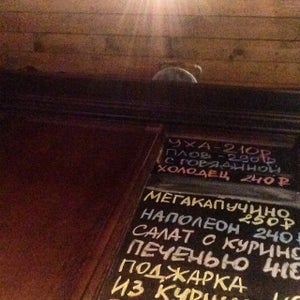 УХА - 210р
ПЛОВ - 280р
С ГОВЯДИНОЙ
ХОЛОДЕЦ 240р
МЕГАКАПУЧИНО
250р
НАПОЛЕОН 240
САЛАТ С КУРИНО
ПЕЧЕНЬЮ
ПОДЖАРКА
ИЗ КУРИ